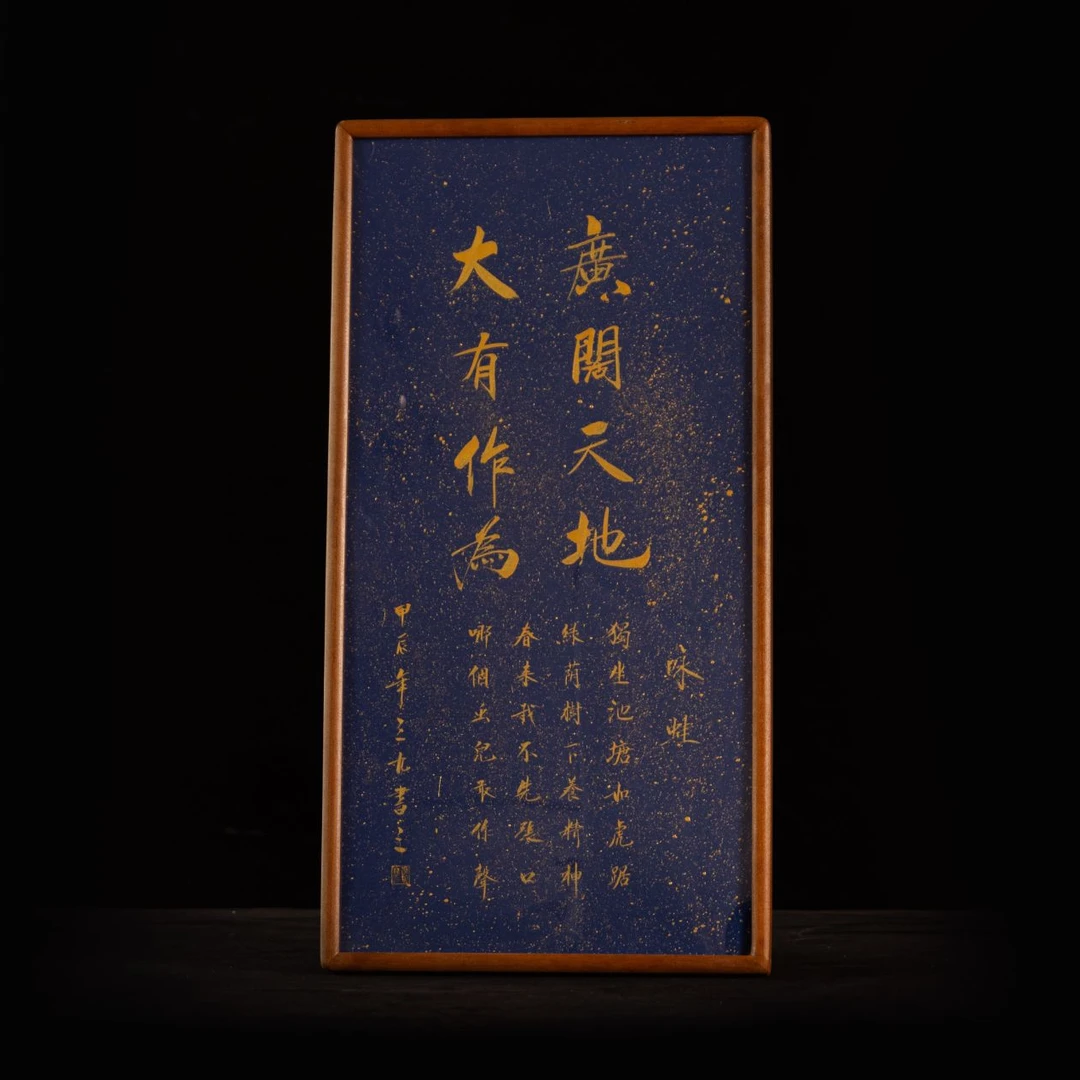 廣闊天地
大有作為
咏蛙
獨坐池塘如虎踞
綠荫樹下養精神
春來我不先張口
哪個虫兒敢作聲
甲辰年三九書之